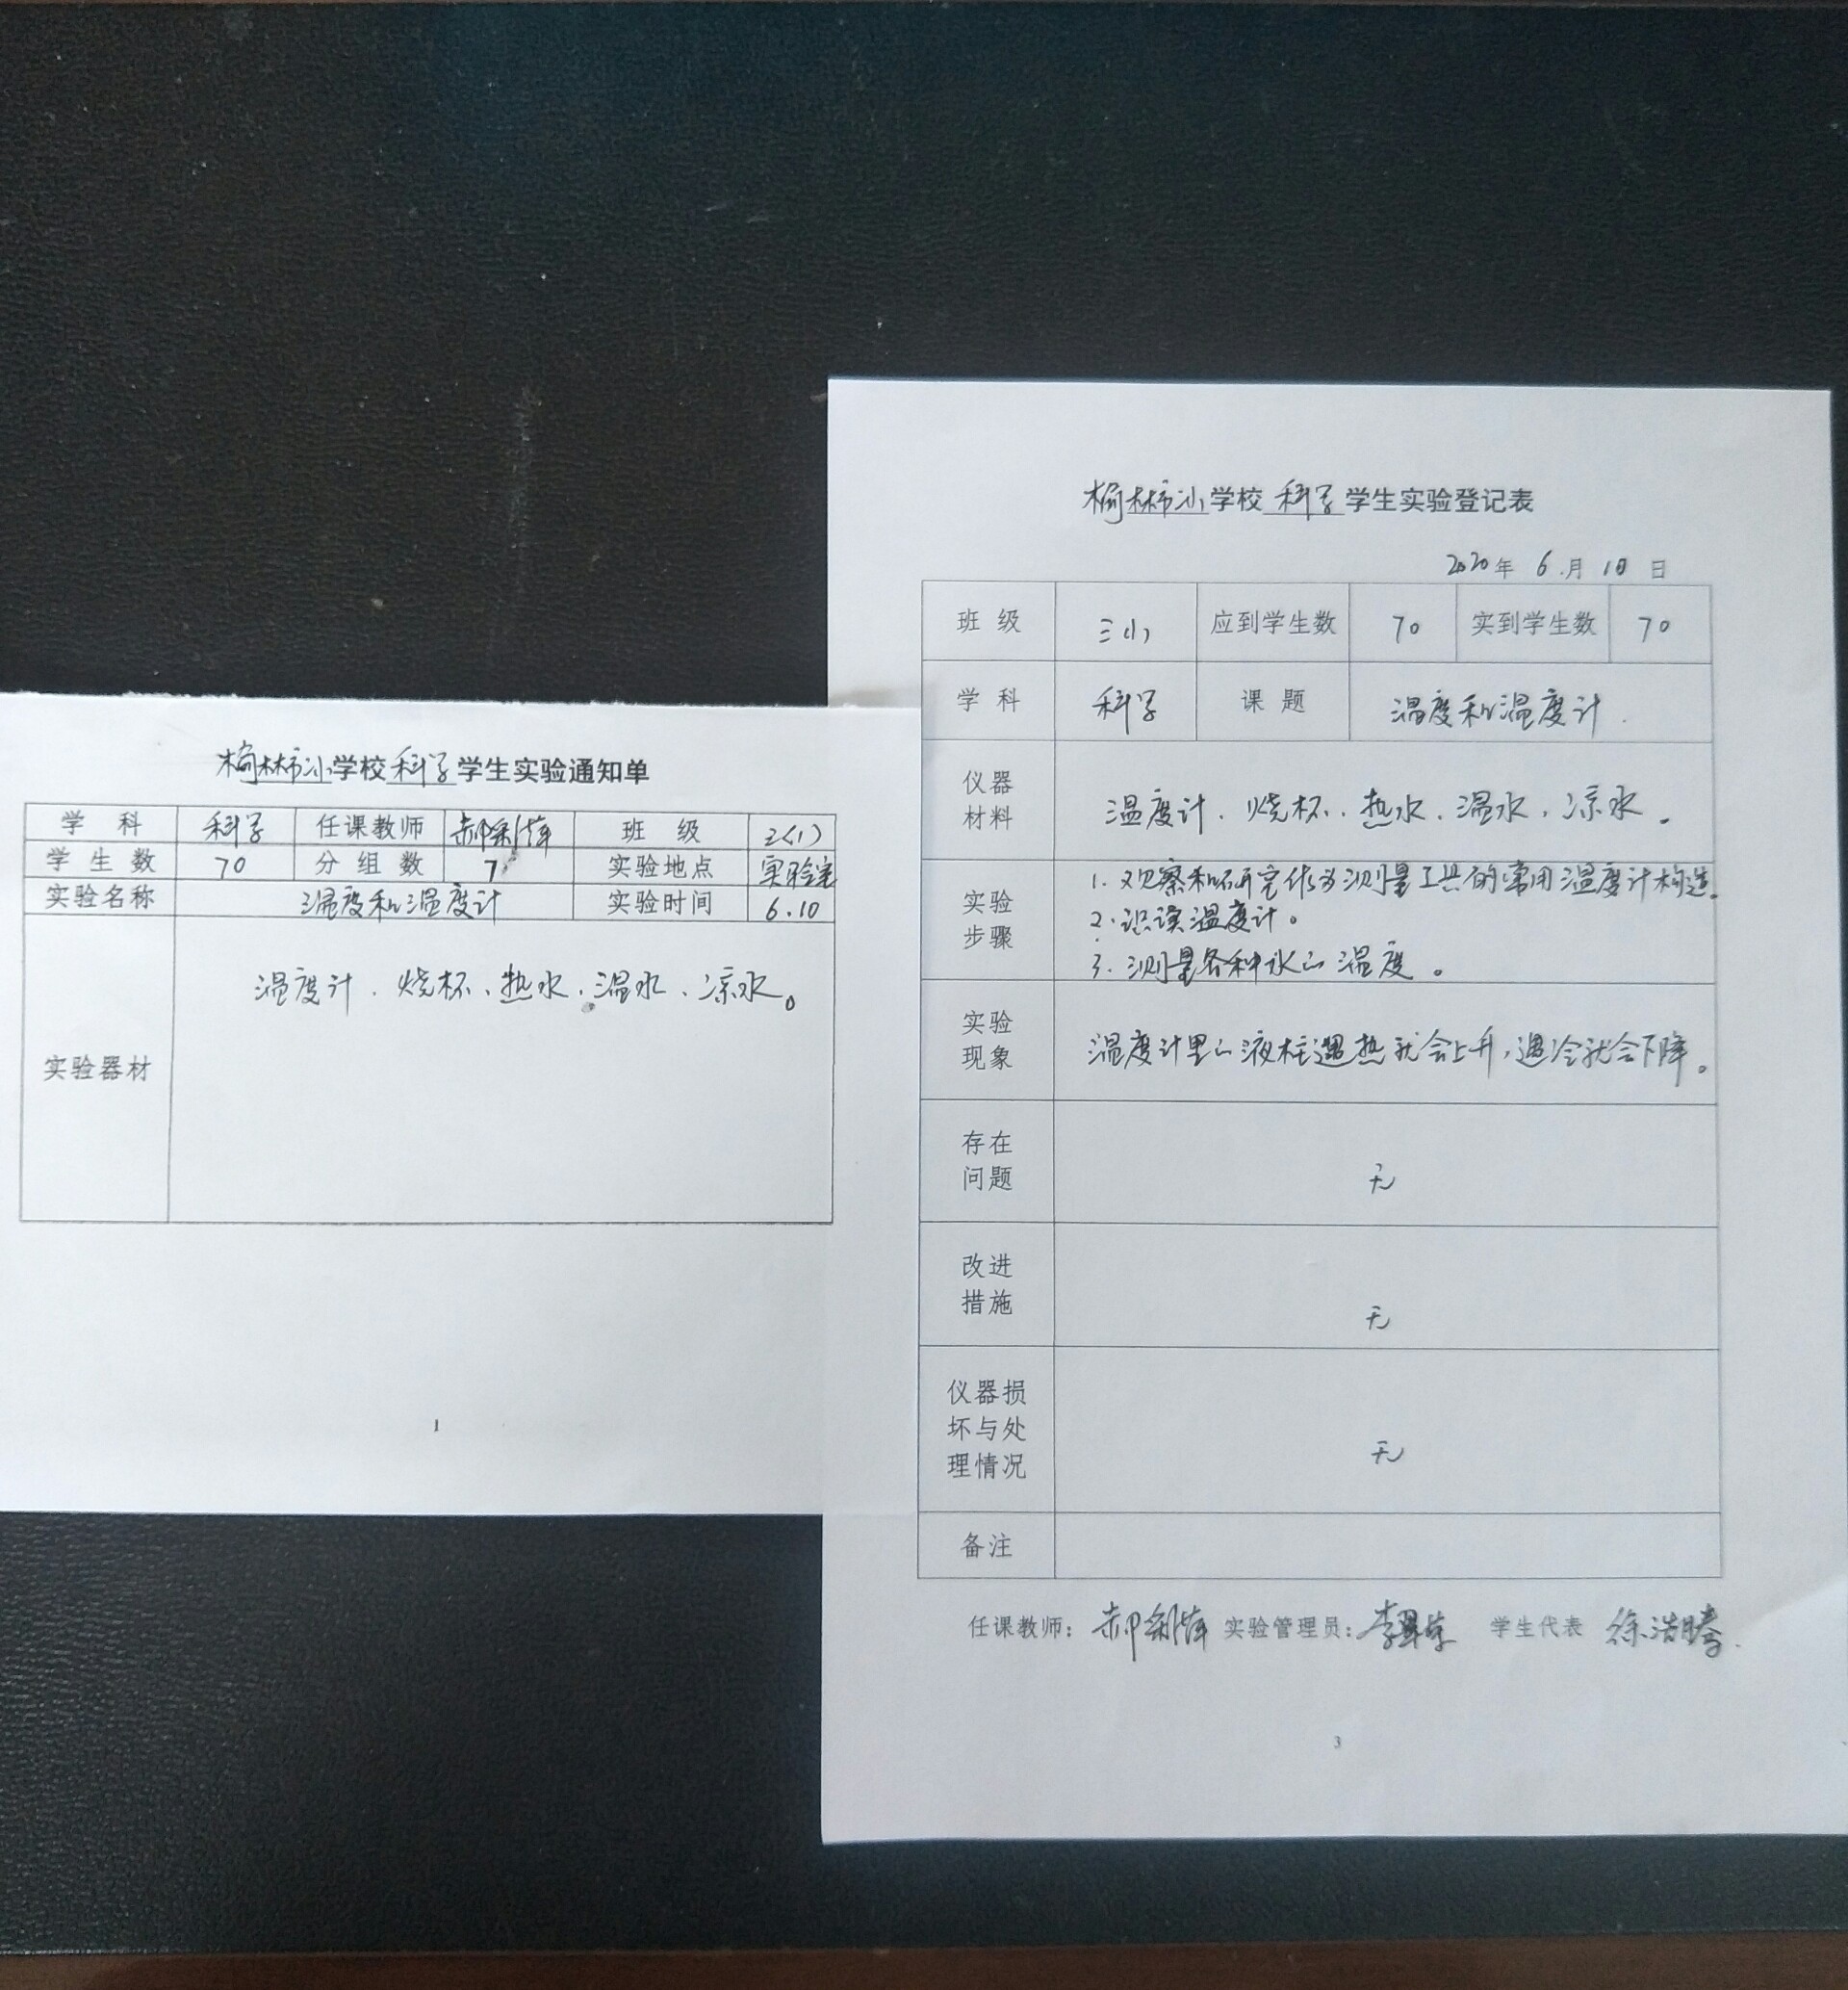 榆林市小学校科学学生实验通知单
学科 科学 任课教师 郝利萍 班级 三(1)
学生数 70 分组数 7 实验地点 实验室
实验名称 温度和温度计 实验时间 6.10
实验器材 温度计、烧杯、热水、温水、凉水。
1
榆林市小学校科学学生实验登记表
2020年6月10日
班级 三(1) 应到学生数 70 实到学生数 70
学科 科学 课题 温度和温度计.
仪器材料 温度计、烧杯、热水、温水、凉水。
实验步骤 1.观察和研究作为测量工具的常用温度计构造。
2.识读温度计。
3.测量各种水的温度。
实验现象 温度计里的液柱遇热就会上升,遇冷就会下降。
存在问题 无
改进措施 无
仪器损坏与处理情况 无
备注
任课教师：郝利萍 实验管理员： 学生代表 徐浩
3